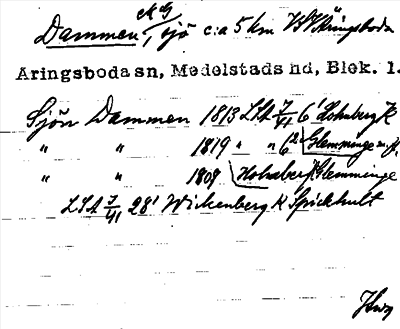 Dammen, sjö c:a 5 km VSV Åringsboda
Aringsboda sn, Medelstads hd, Blek. l.
Sjön Dammen 1813 LSA 7/41 6' Hohaberg K
" " 1819 " " 6²
" " 1809 Hohaberg Glemminge
LSA 7/41 28' Wickenberg K Spickhult